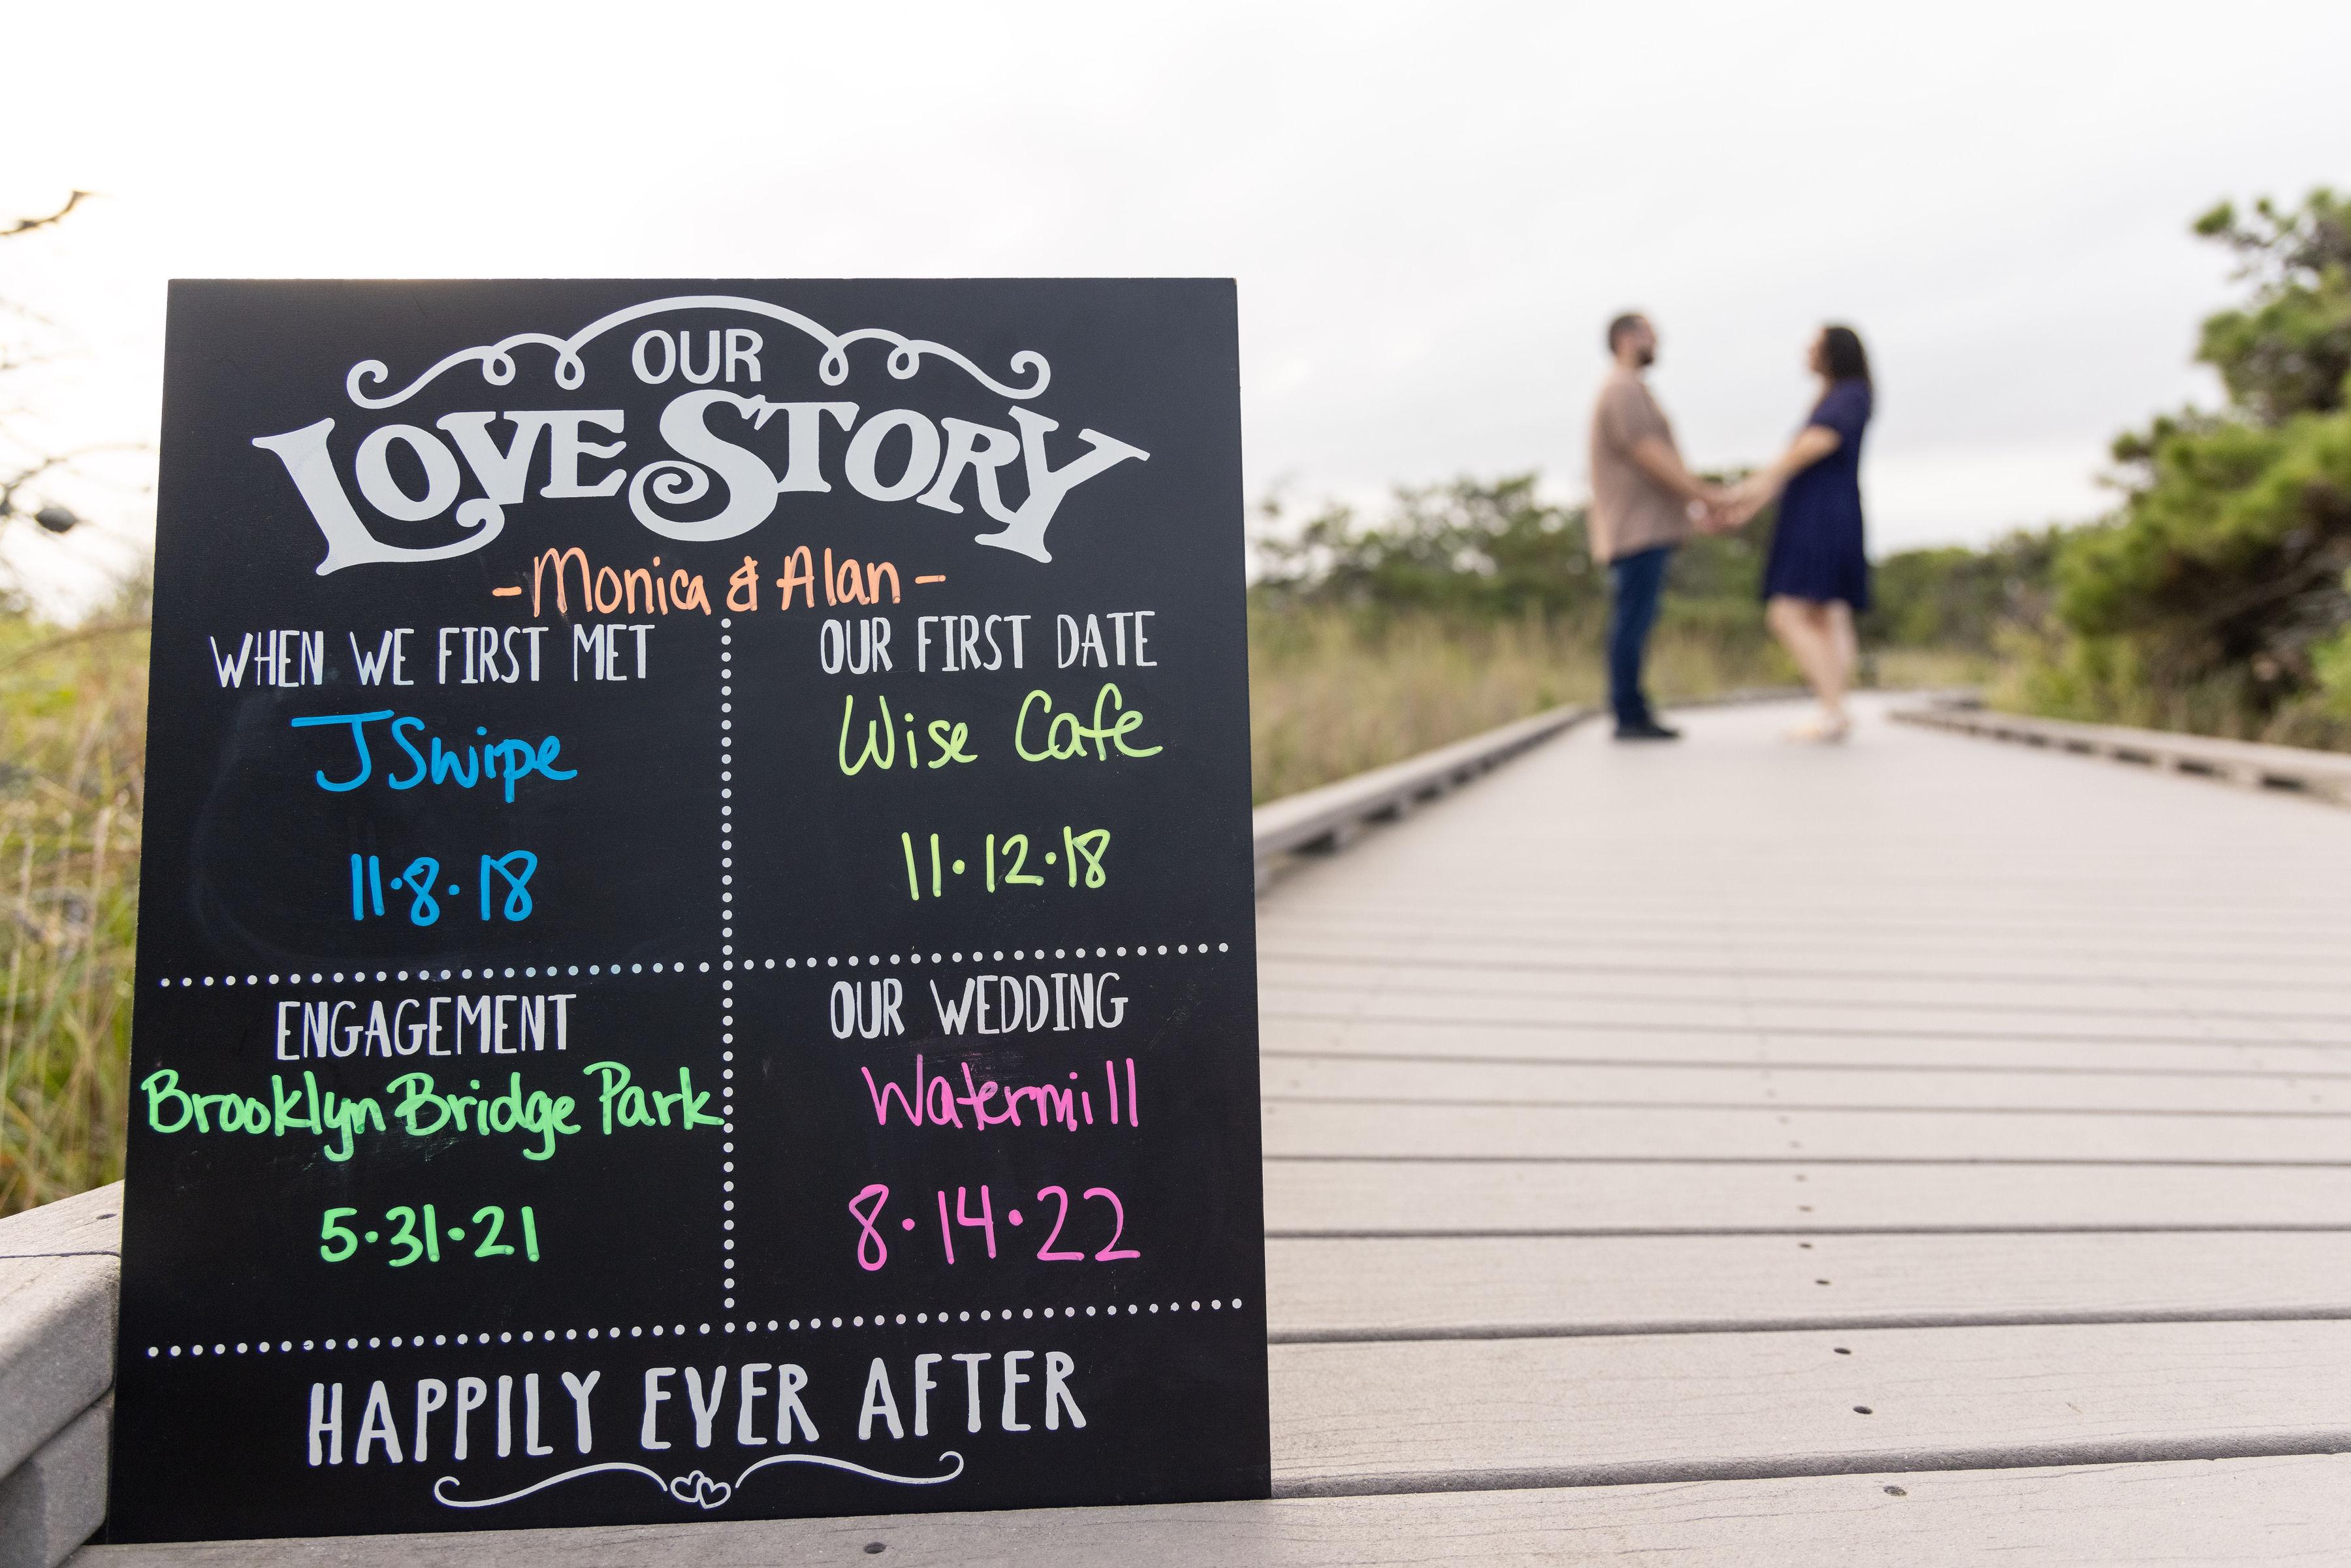 OUR
LOVE STORY
- Monica & Alan -
WHEN WE FIRST MET
JSwipe
11·8·18
OUR FIRST DATE
Wise Cafe
11·12·18
ENGAGEMENT
Brooklyn Bridge Park
5·31·21
OUR WEDDING
Watermill
8·14·22
HAPPILY EVER AFTER